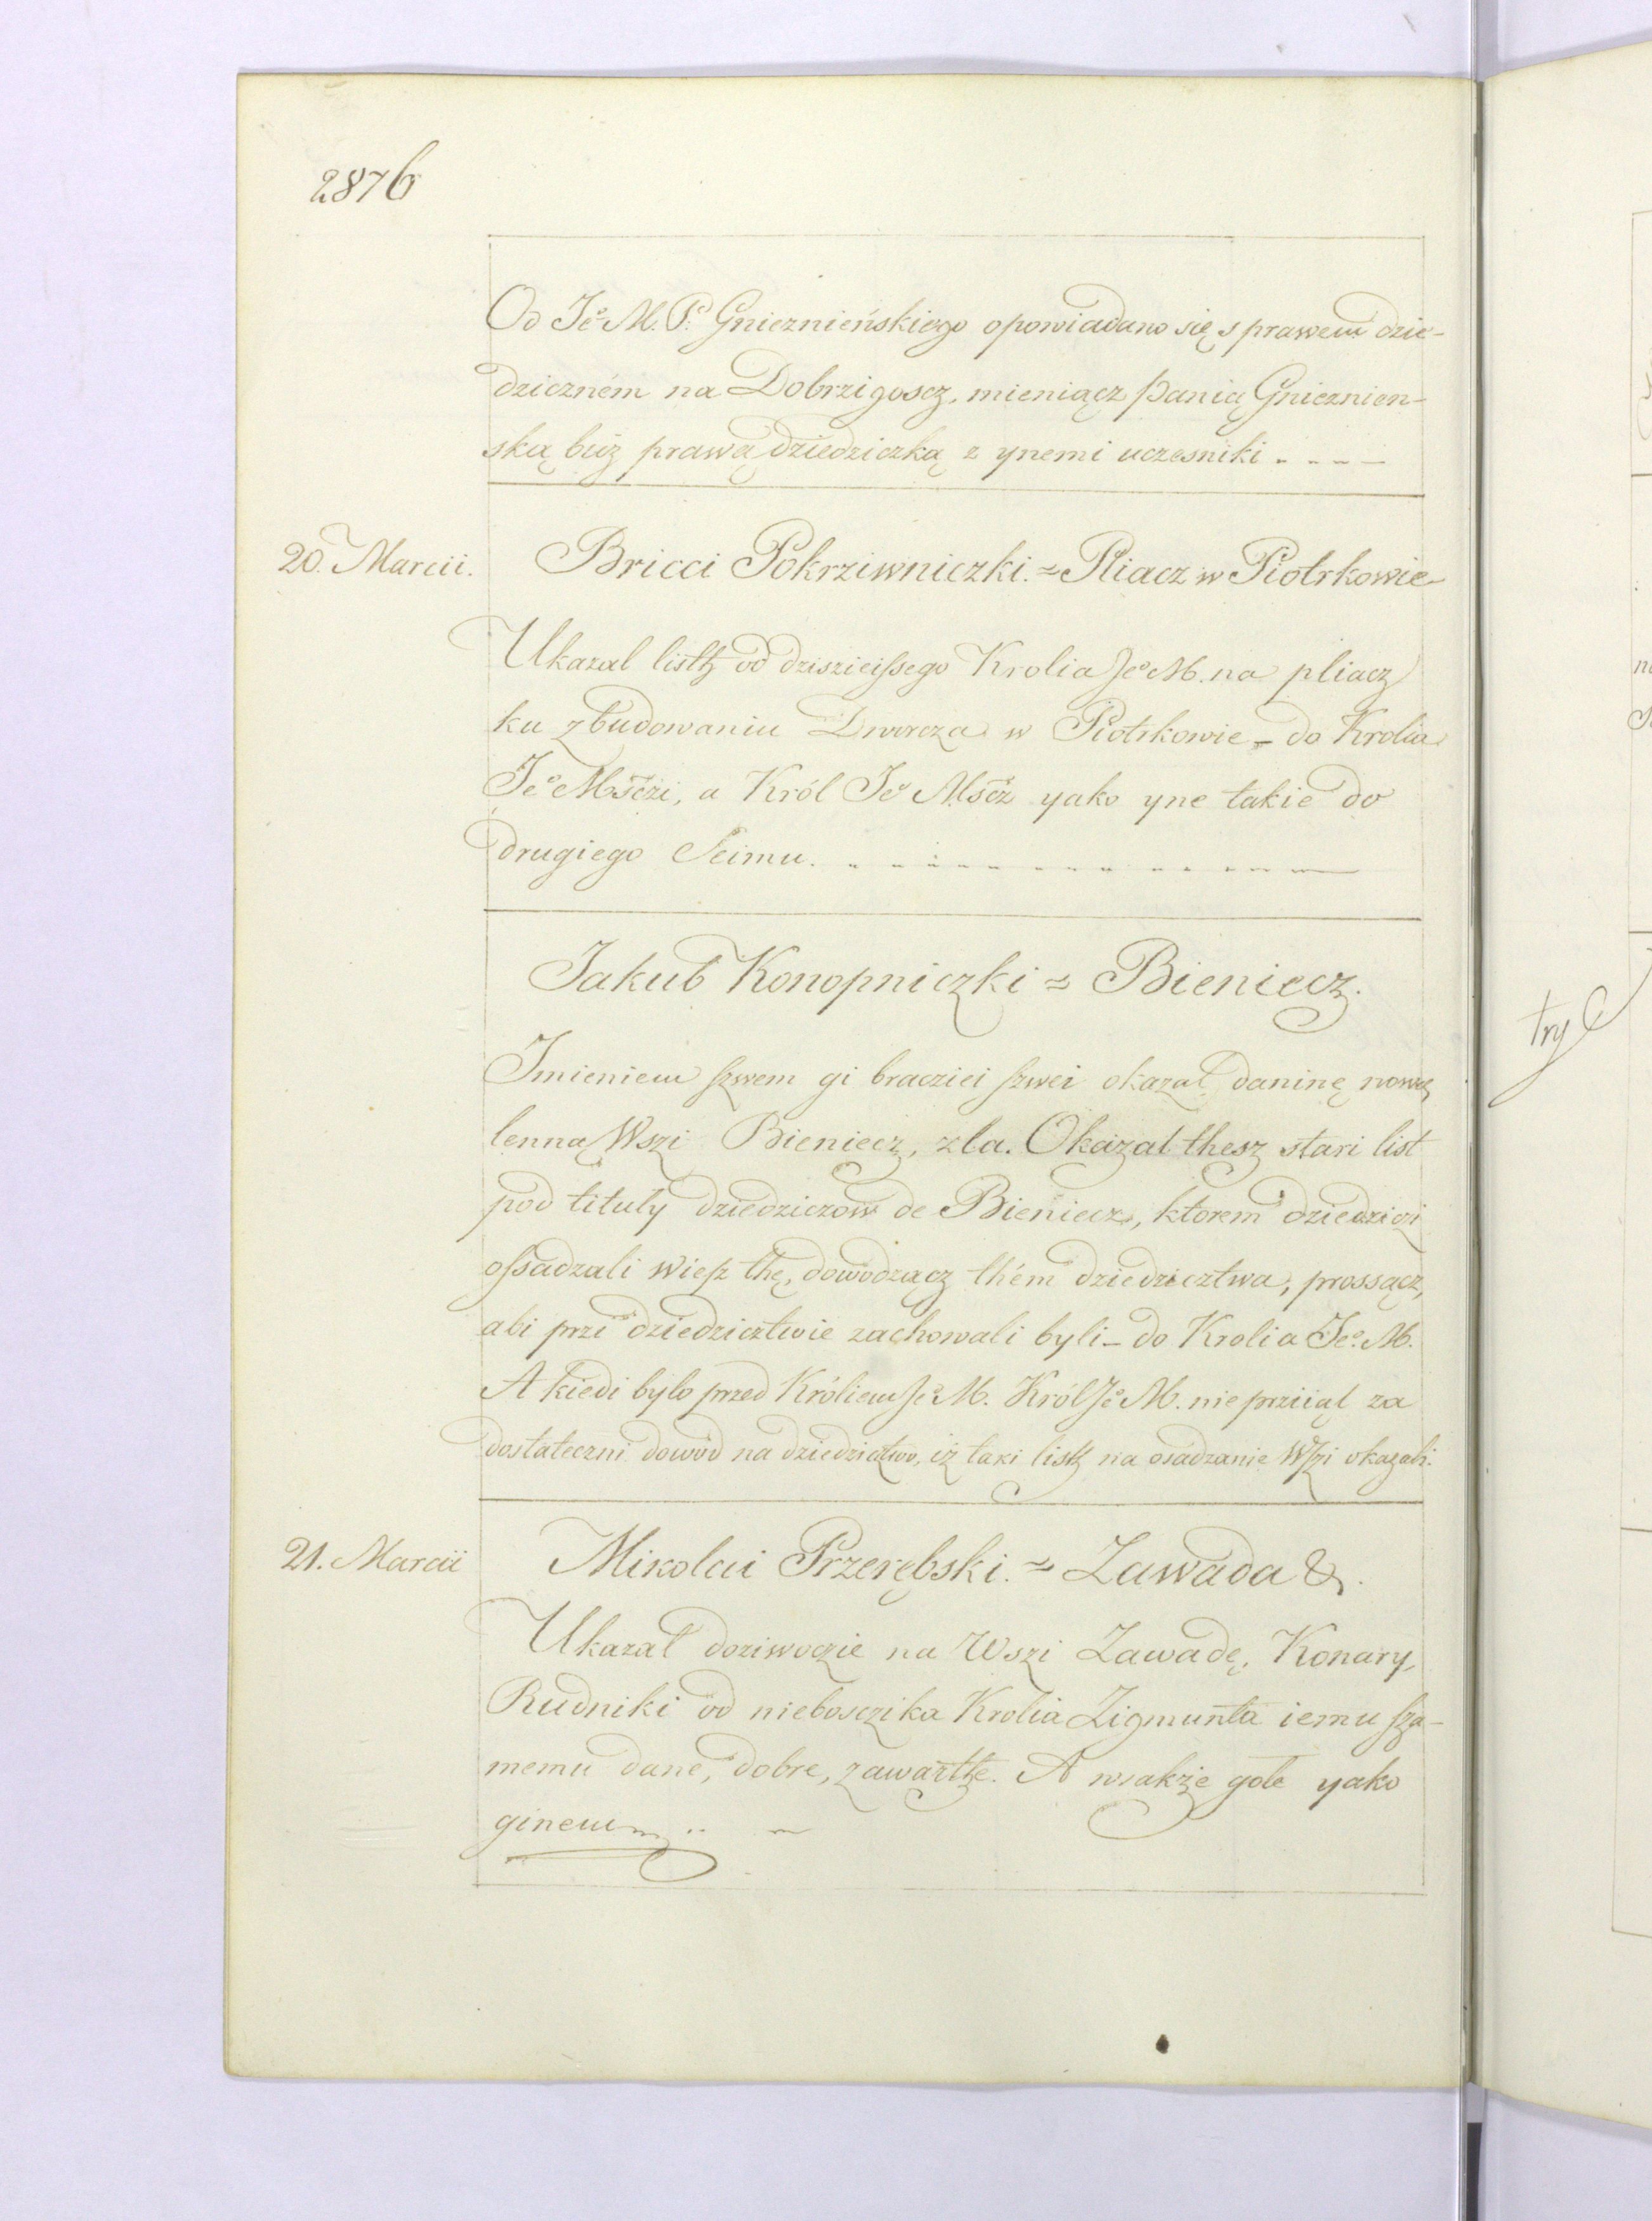 2876
Od Jeº M. Pª Gnieznieńskiego opowiadano się s prawem dzie-
dziczném na Dobrzigoscz, mieniącz Panią Gnieznien-
ską búz prawą dziedziczką z ynemi uczesniki . - - -
20. Marcii. Bricci Pokrziwniczki. = Pliacz w Piotrkowie
Ukazal listh od dziszieissego Krolia Jeº M. na pliacz
ku zbudowaniu Dworcza w Piotrkowie - do Krolia
Jeº Mśczi, a Król Jeº Mścz yako yne takie do
drugiego Seimu.
Jakub Konopniczki = Bieniecz.
Jmieniem szwem gi bracziei szwei okazał daninę nową
lenną Wszi Bieniecz, zla. Okazał thesz stari list
pod tituły dziedziczow de Bieniecz, ktorem dziedziczi
ossadzali wiesz thę, dowodzącz thém dziedzicztwa, prossącz,
abi przi dziedzicztwie zachowali byli - do Krolia Jeº M.
A kiedi było przed Króliem Jeº M. Król Jeº M. nie prziiął za
dostateczni dowód na dziedzictwo, iż taki listh na osádzanie Wszi okazali.
21. Marcii Mikolai Przerębski. = Zawada &.
Ukazał doziwoczie na Wszi Zawadę, Konary,
Rudniki od niebosczika Krolia Zigmunta iemu sza-
memu dane, dobre, zawarthe. A wsakże gołe yako
ginem
try